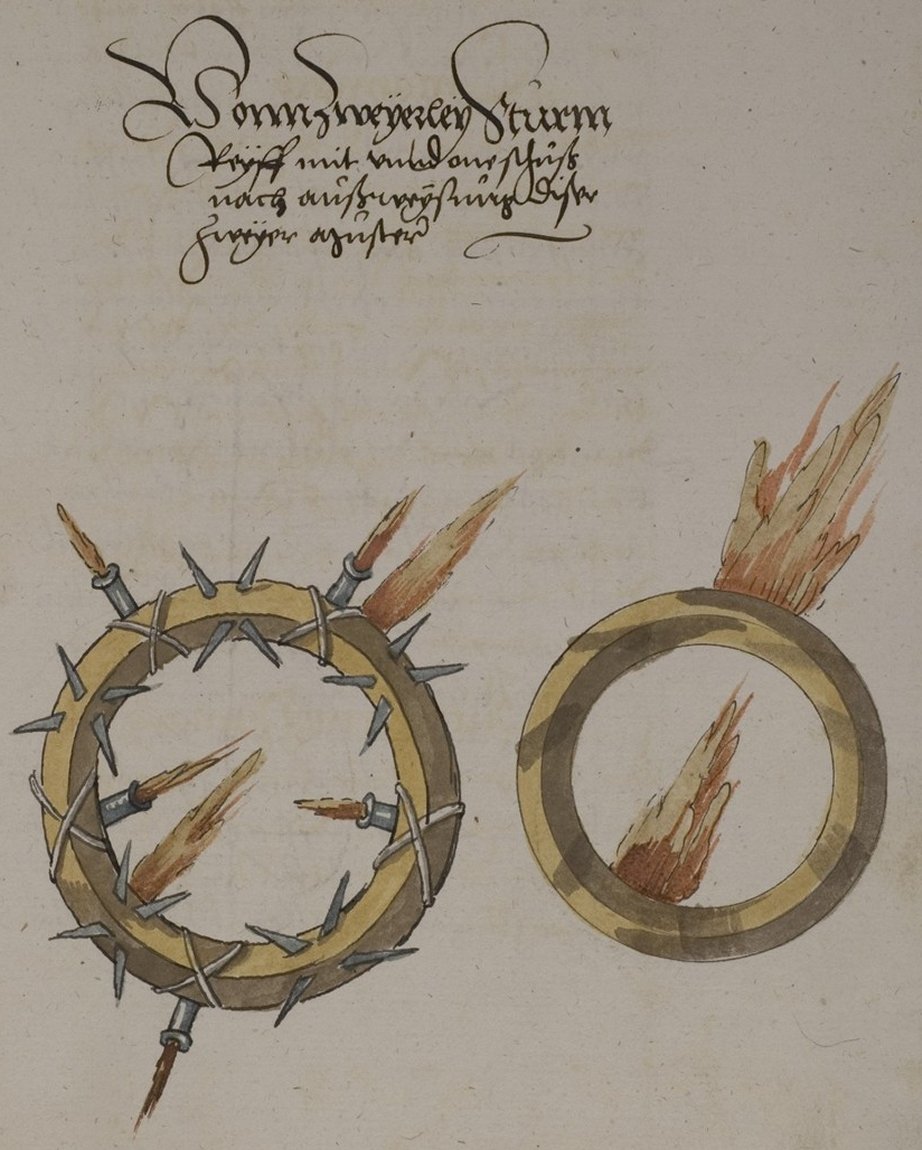 Vonn zweyerley Sturm
Reyff mit vnnd one schuß
nach außweysung diser
zweyer muster